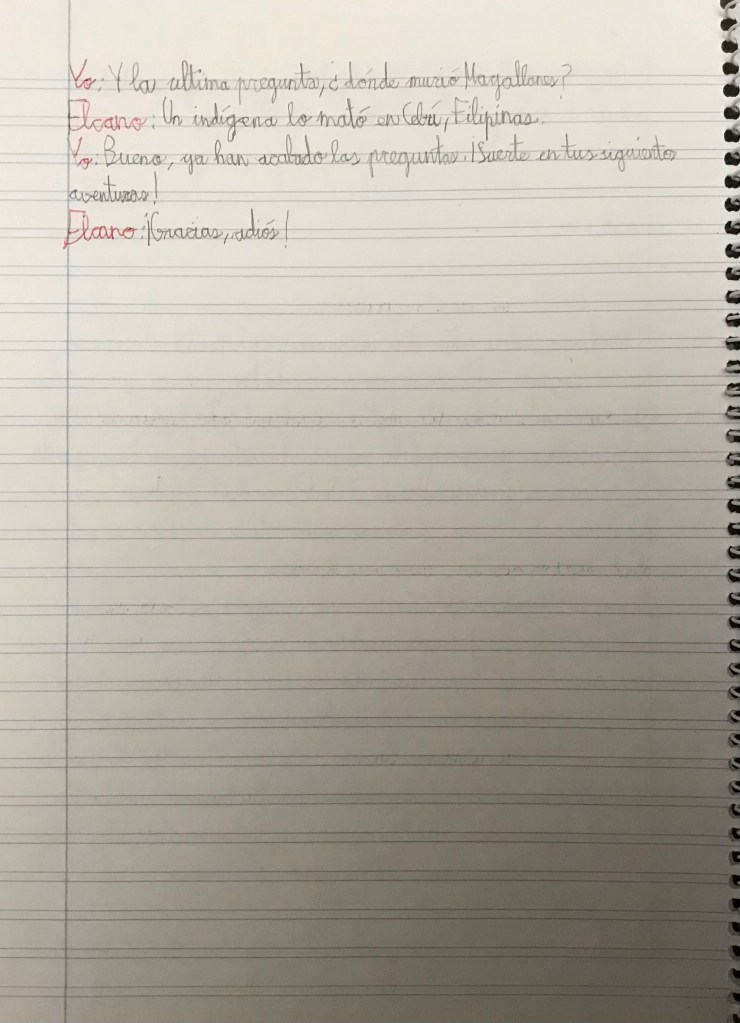 Yo: Y la ultima pregunta, ¿dónde murió Magallanes?
Elcano: Un indígena lo mató en Cebú, Filipinas.
Yo: Bueno, ya han acabado las preguntas. ¡Suerte en tus siguientes
aventuras!
Elcano: ¡Gracias, adiós!